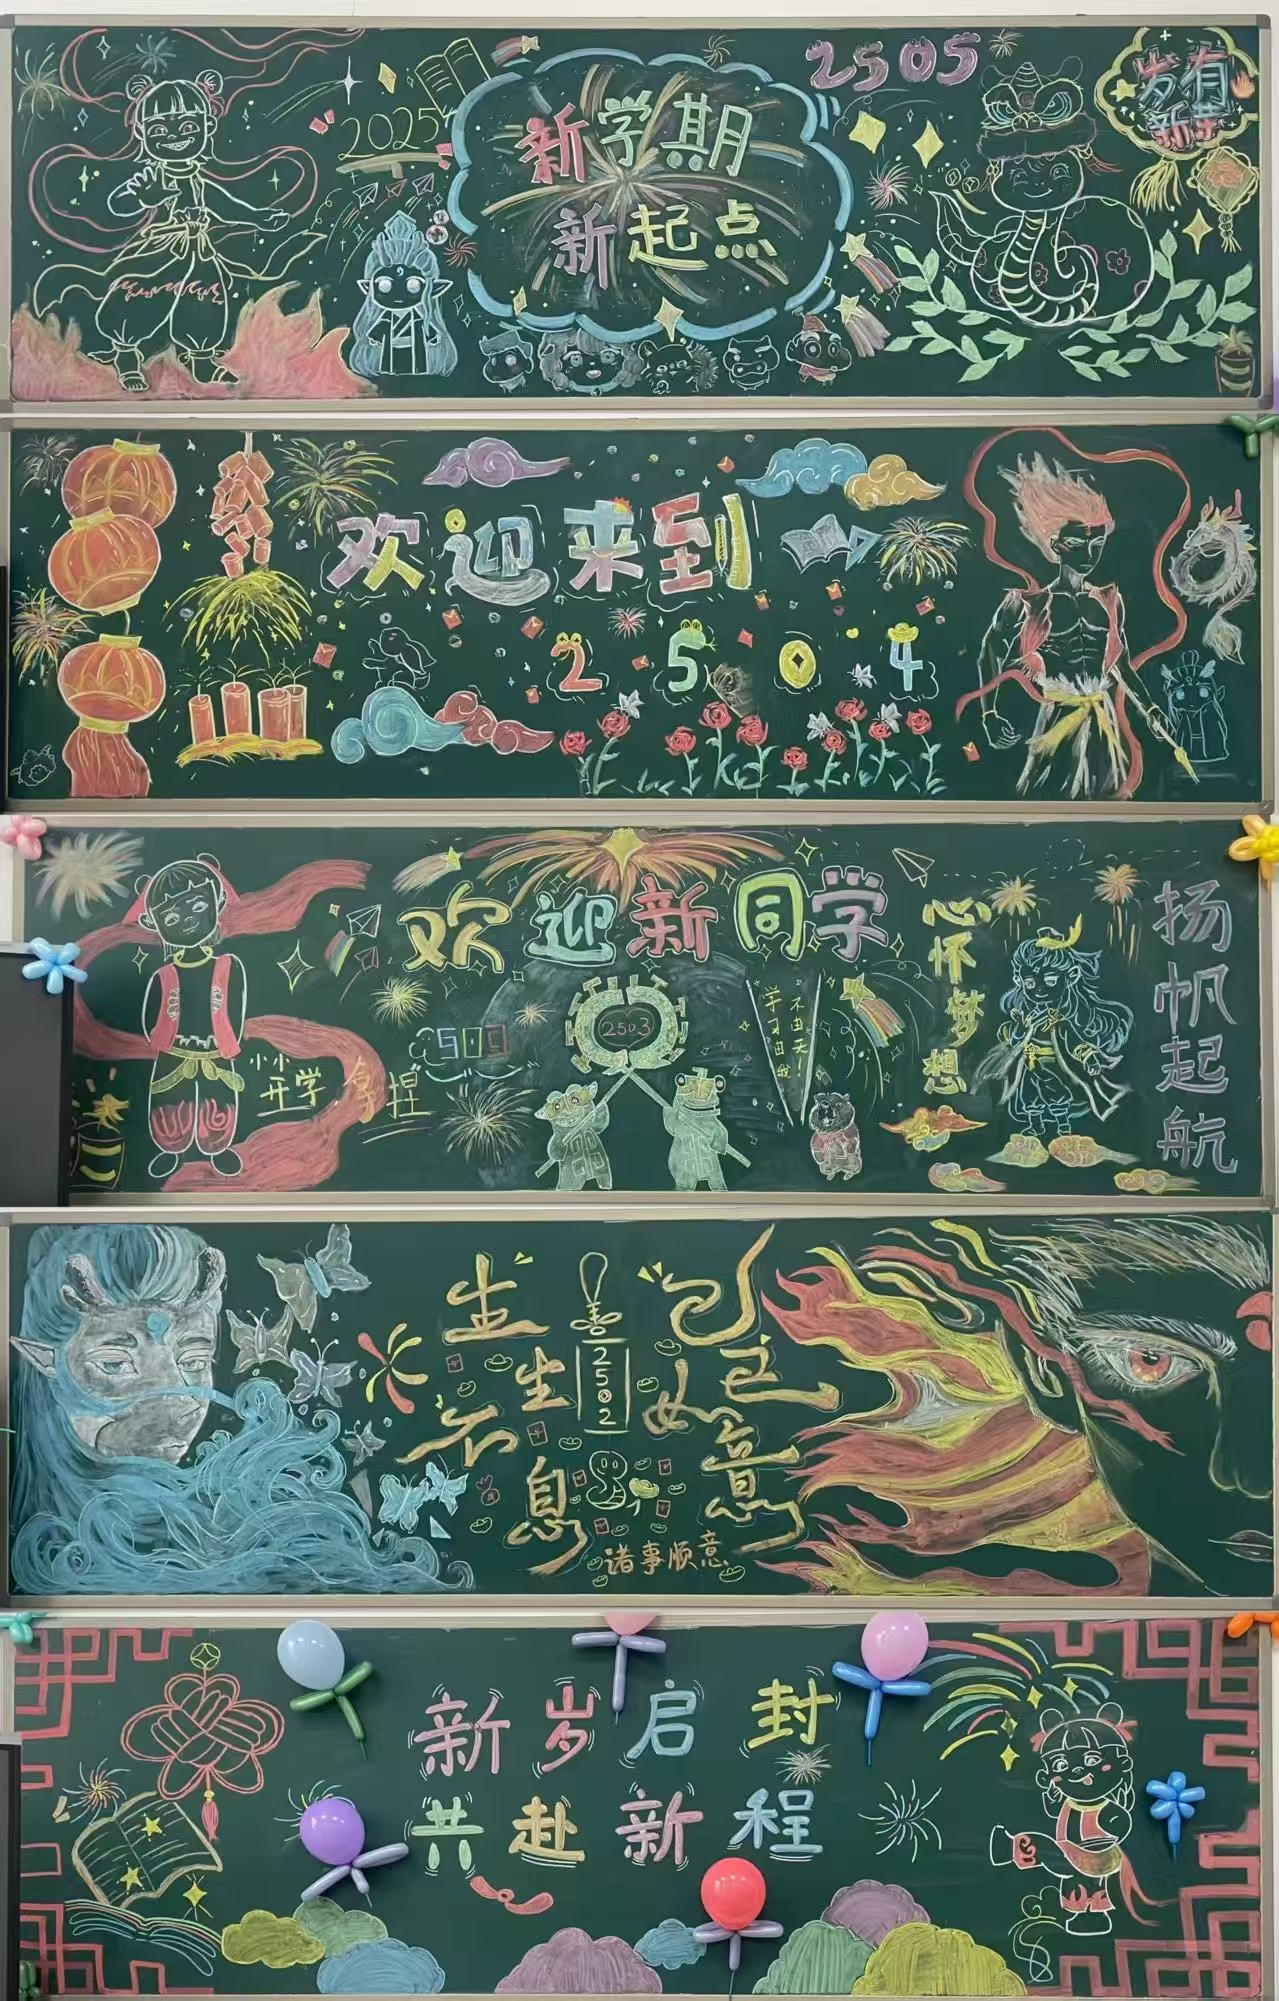 2025
新学期
新起点
2505
岁有
新
欢迎来到
2 5 0 4
欢迎新同学
2503
小小
开学 拿捏
学习由我
不由天!
心怀梦想
扬帆起航
生生不息
2502
巳巳如意
诸事顺意
新岁启封
共赴新程